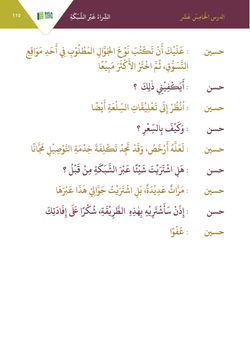 الدرس الخامس عشر
الشراء عبر الشبكة
١١٥
حسين : عَلَيْكَ أَنْ تَكْتُبَ نَوْعَ الجَوَّالِ المَطْلُوبِ فِي أَحَدِ مَوَاقِعِ
التَّسَوُّقِ، ثُمَّ اخْتَرِ الأَكْثَرَ مَبِيعًا
حسن : أَيَكْفِينِي ذَلِكَ ؟
حسين : اُنْظُرْ إِلَى تَعْلِيقَاتِ السِّلْعَةِ أَيْضًا
حسن : وَكَيْفَ بِالسِّعْرِ ؟
حسين : لَعَلَّهُ أَرْخَصُ، وَقَدْ تَجِدُ تَكْلِفَةَ خِدْمَةِ التَّوْصِيلِ مَجَّانًا
حسن : هَلِ اشْتَرَيْتَ شَيْئًا عَبْرَ الشَّبَكَةِ مِنْ قَبْلُ ؟
حسين : مَرَّاتٌ عَدِيدَةٌ، بَلِ اشْتَرَيْتُ جَوَّالِي هَذَا عَبْرَهَا
حسن : إِذَنْ سَأَشْتَرِيْهِ بِهَذِهِ الطَّرِيْقَةِ، شُكْرًا عَلَى إِفَادَتِكَ
حسين : عَفْوًا